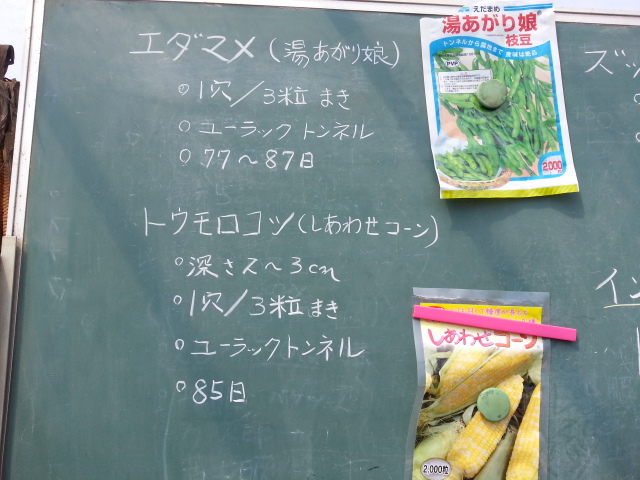 エダマメ(湯あがり娘)
○1穴/3粒まき
○ユーラックトンネル
○77〜87日
トウモロコツ(しあわせコーン)
○深さ2〜3cm
○1穴/3粒まき
○ユーラックトンネル
○85日
えだまめ
湯あがり娘
枝豆
トンネルから露地まで
PVP
2,000
しあわせコーン
2,000粒
ズッ
イン